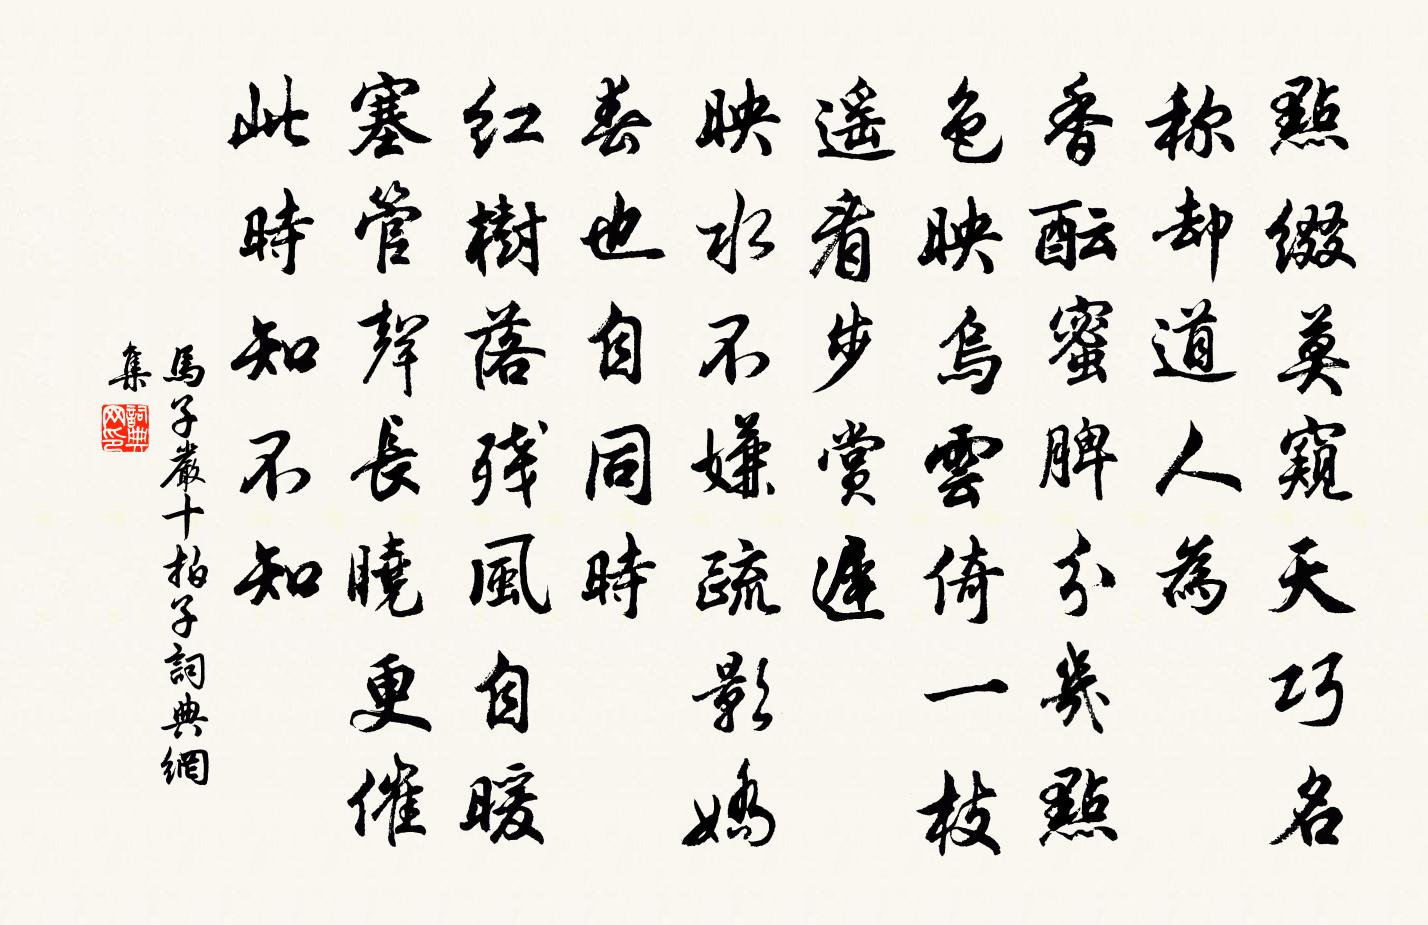 點綴莫窺天巧名
称却道人為
香酝蜜脾分幾點
色映烏雲倚一枝
遥看步賞遲
映水不嫌疏影嬌
春也自同時
紅樹落残風自暖
塞管聲長曉更催
此時知不知
馬子嚴十拍子詞典網
集
詞典网印